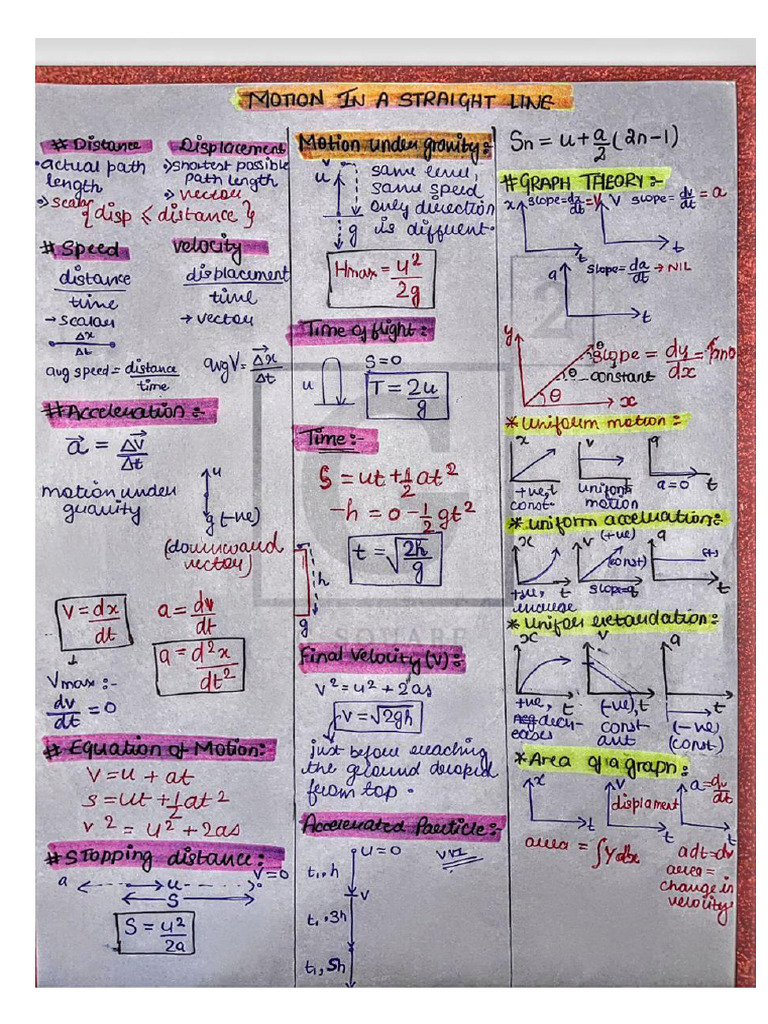 MOTION IN A STRAIGHT LINE
# Distance
• actual path
length
→ scalar
Displacement
→ shortest possible
path length
→ vector
{disp ⩽ distance}
# Speed
distance
time
→ scalar
Δx
Δt
avg speed = distance
time
velocity
displacement
time
→ vector
avg V = Δx
Δt
# Acceleration :-
a = Δv
Δt
motion under
gravity
u
g (-ve)
(downward
vector)
V = dx
dt
a = dv
dt
a = d²x
dt²
Vmax :-
dv
dt = 0
# Equation of Motion:-
V = u + at
s = ut + 1/2 at²
v² = u² + 2as
# Stopping distance:-
a u V=0
S
S = u²
2a
Motion under gravity:-
v
u
g
same level,
same speed
only direction
is different.
Hmax = u²
2g
Time of flight:-
u
S = 0
T = 2u
g
Time:-
S = ut + 1/2 at²
-h = 0 - 1/2 gt²
t = √2h
g
h
g
SQUARE
Final Velocity (V):-
v² = u² + 2as
V = √2gh
just before reaching
the ground droped
from top.
Accelerated Particle:-
u = 0
t₁, h
v
t₁, 3h
t₁, 5h
Sn = u + a/2 (2n-1)
# GRAPH THEORY:-
x slope = dx/dt = V
t
V slope = dv/dt = a
t
a slope = da/dt → NIL
t
y
slope = dy/dx = tanθ
θ → constant
θ
x
* Uniform motion:-
x v a
+ve, t
const.
uniform
motion
a = 0 t
* uniform acceluation:-
x V (+ve) a
(const) (+)
+ve, t slope=a t
* Uniform retardation:-
x V a
+ve, t
decr-
eases
(-ve), t
const
ant
t
(-ve)
(const)
* Area of a graph:-
x
t
V
displament
t
a = dv
dt
t
area = ∫Ydx
adt = dv
area =
change in
velocity